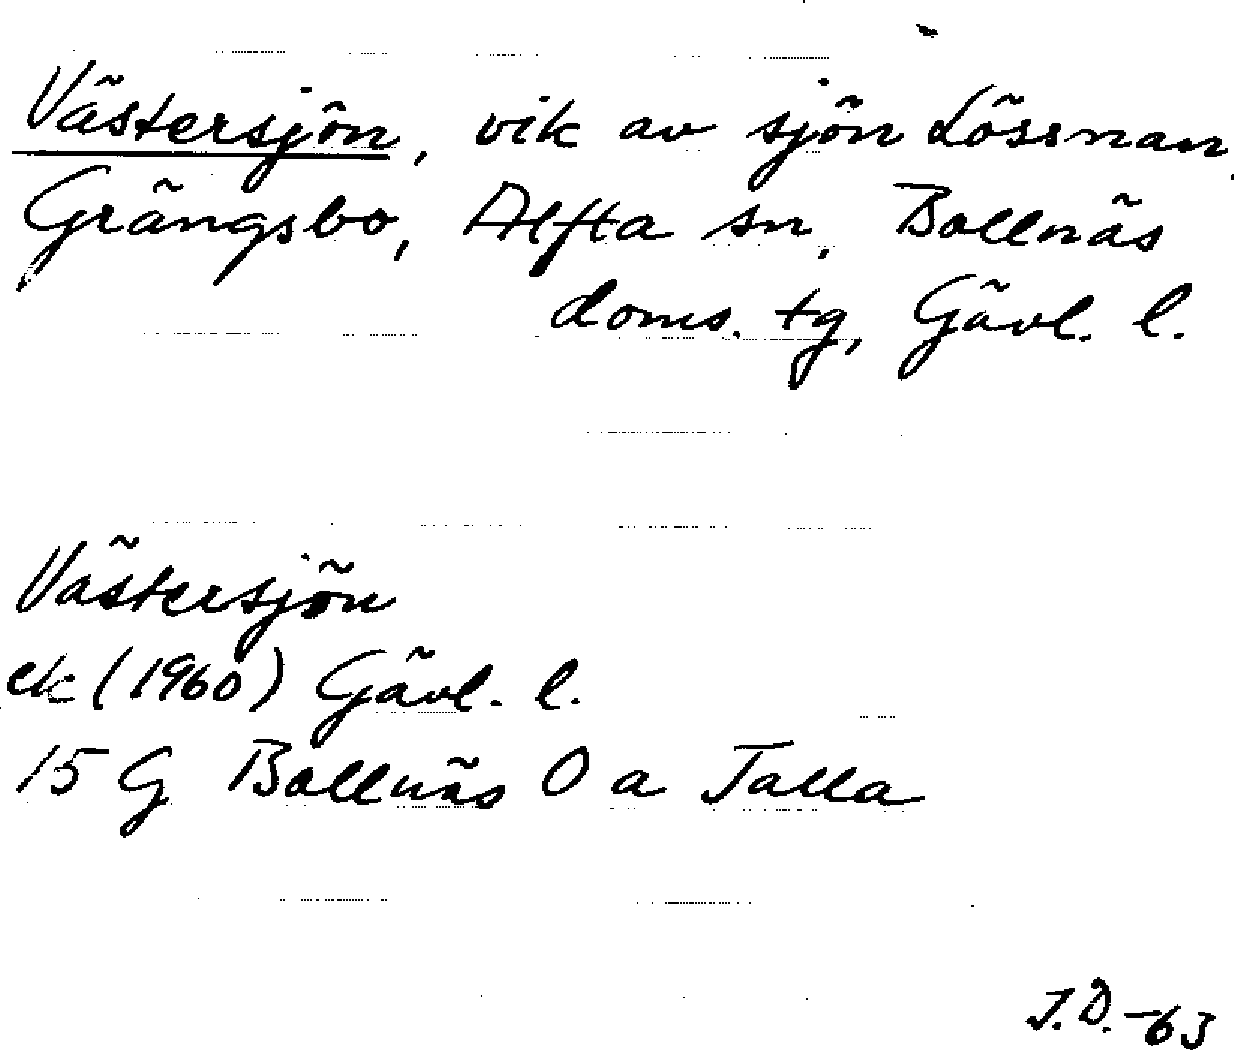 Västersjön, vik av sjön Lössnan,
Grängsbo, Alfta sn, Bollnäs
doms. tg, Gävl. l.
Västersjön
ek (1960) Gävl. l.
15 G Bollnäs O a Talla
J.D.-63